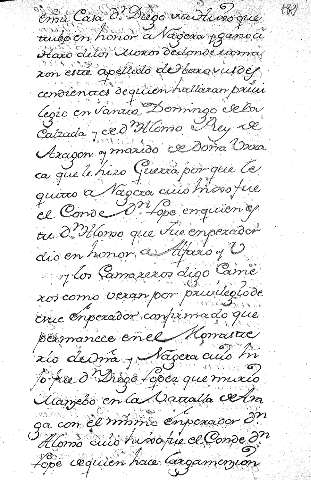 en su Casa D.n Diego
tubo en honor a Nagera y gano a
Haro de los Moros de donde toma
ron este apellido de Haro sus des
cendientes de quien hallaran previ
legio en Santo Domingo de la
Calzada y de D.n Alonso Rey de
Aragon y marido de Doña Urra
ca que le hizo Guerra por que le
quitto a Nagera cuio hixo fue
el Conde D.n Lope en quien es
te D.n Alonso que fue enperador
dio en honor a Alfaro y V
y los Camareros digo Came
ros como veran por previlegio de
este Enperador confirmado que
permanece en el Monaste
rio de y Nagera cuio hi
fo fue D.n Diego Lopez que murio
Manzebo en la Vattalla de
ga con el mismo enperador D.n
Alonso cuio hixo fue el Conde D.n
Lope de quien hace larga menzion